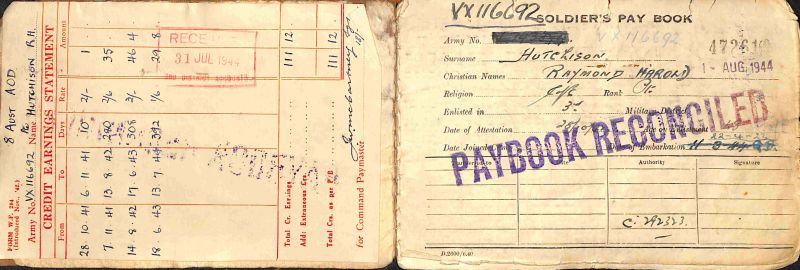 FORM W.F. 204
(Introduced Nov., '42.)
8 AUST AOD
Army No. VX116692 Name HUTCHISON R.H.
CREDIT EARNINGS STATEMENT
From To Days Rate Amount
28 10 41 6 11 41 10 2/- 1
7 11 41 13 8 42 280 2/6 35
14 8 42 17 6 43 308 3/- 46 4
18 6 43 13 7 44 392 1/6 29 8
RECEIVED
31 JUL 1944
Total Cr. Earnings 111 12
Add: Extraneous Crs.
Total Crs. as per P/B 111 12
for Command Paymaster
VX116692
SOLDIER'S PAY BOOK
Army No. VX116692
Surname HUTCHISON
Christian Names RAYMOND HAROLD
1 - AUG 1944
Religion C/E Rank Pte.
Enlisted in 3rd Military District
Date of Attestation
Date of Embarkation
PAYBOOK RECONCILED
Date Authority Signature
C. 292323.
D.2600/6.40